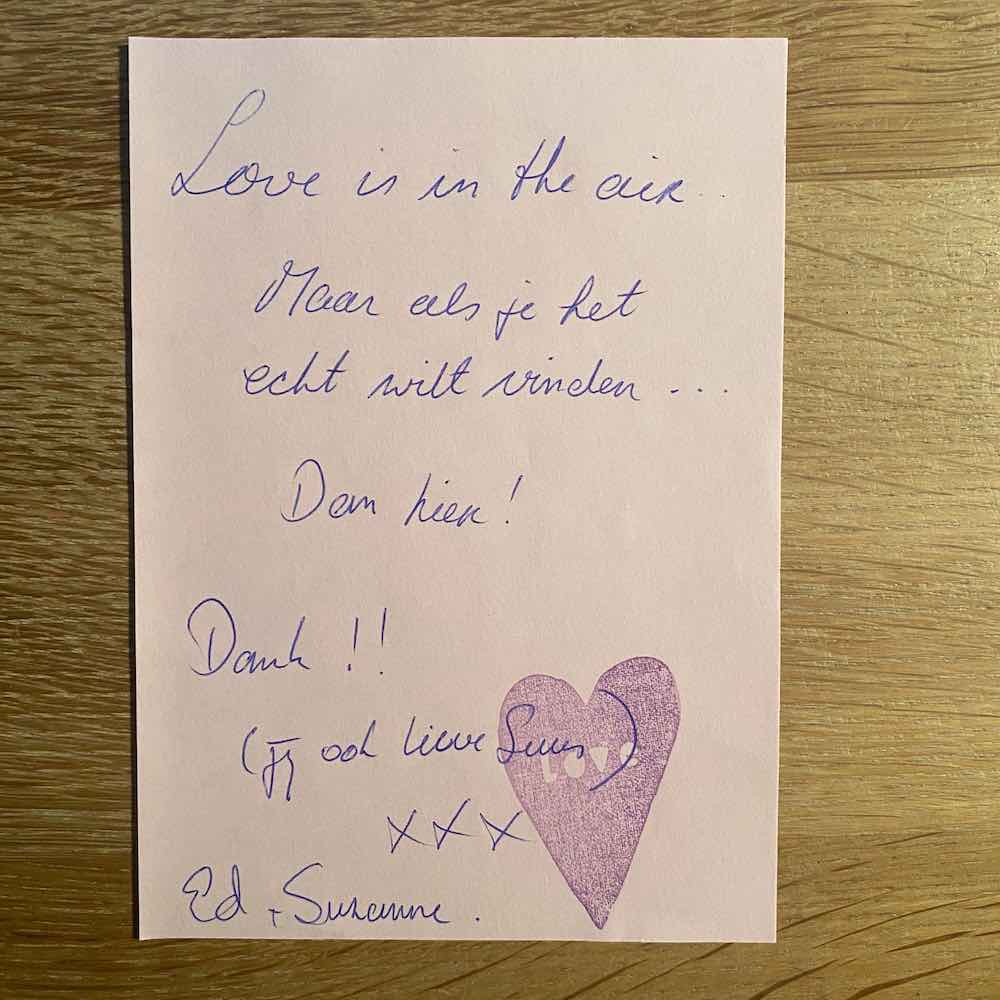 Love is in the air..
Maar als je het
echt wilt vinden ...
Dan hier!
Dank !!
(jij ook lieve Suus)
love
xxx
Ed + Suzanne.